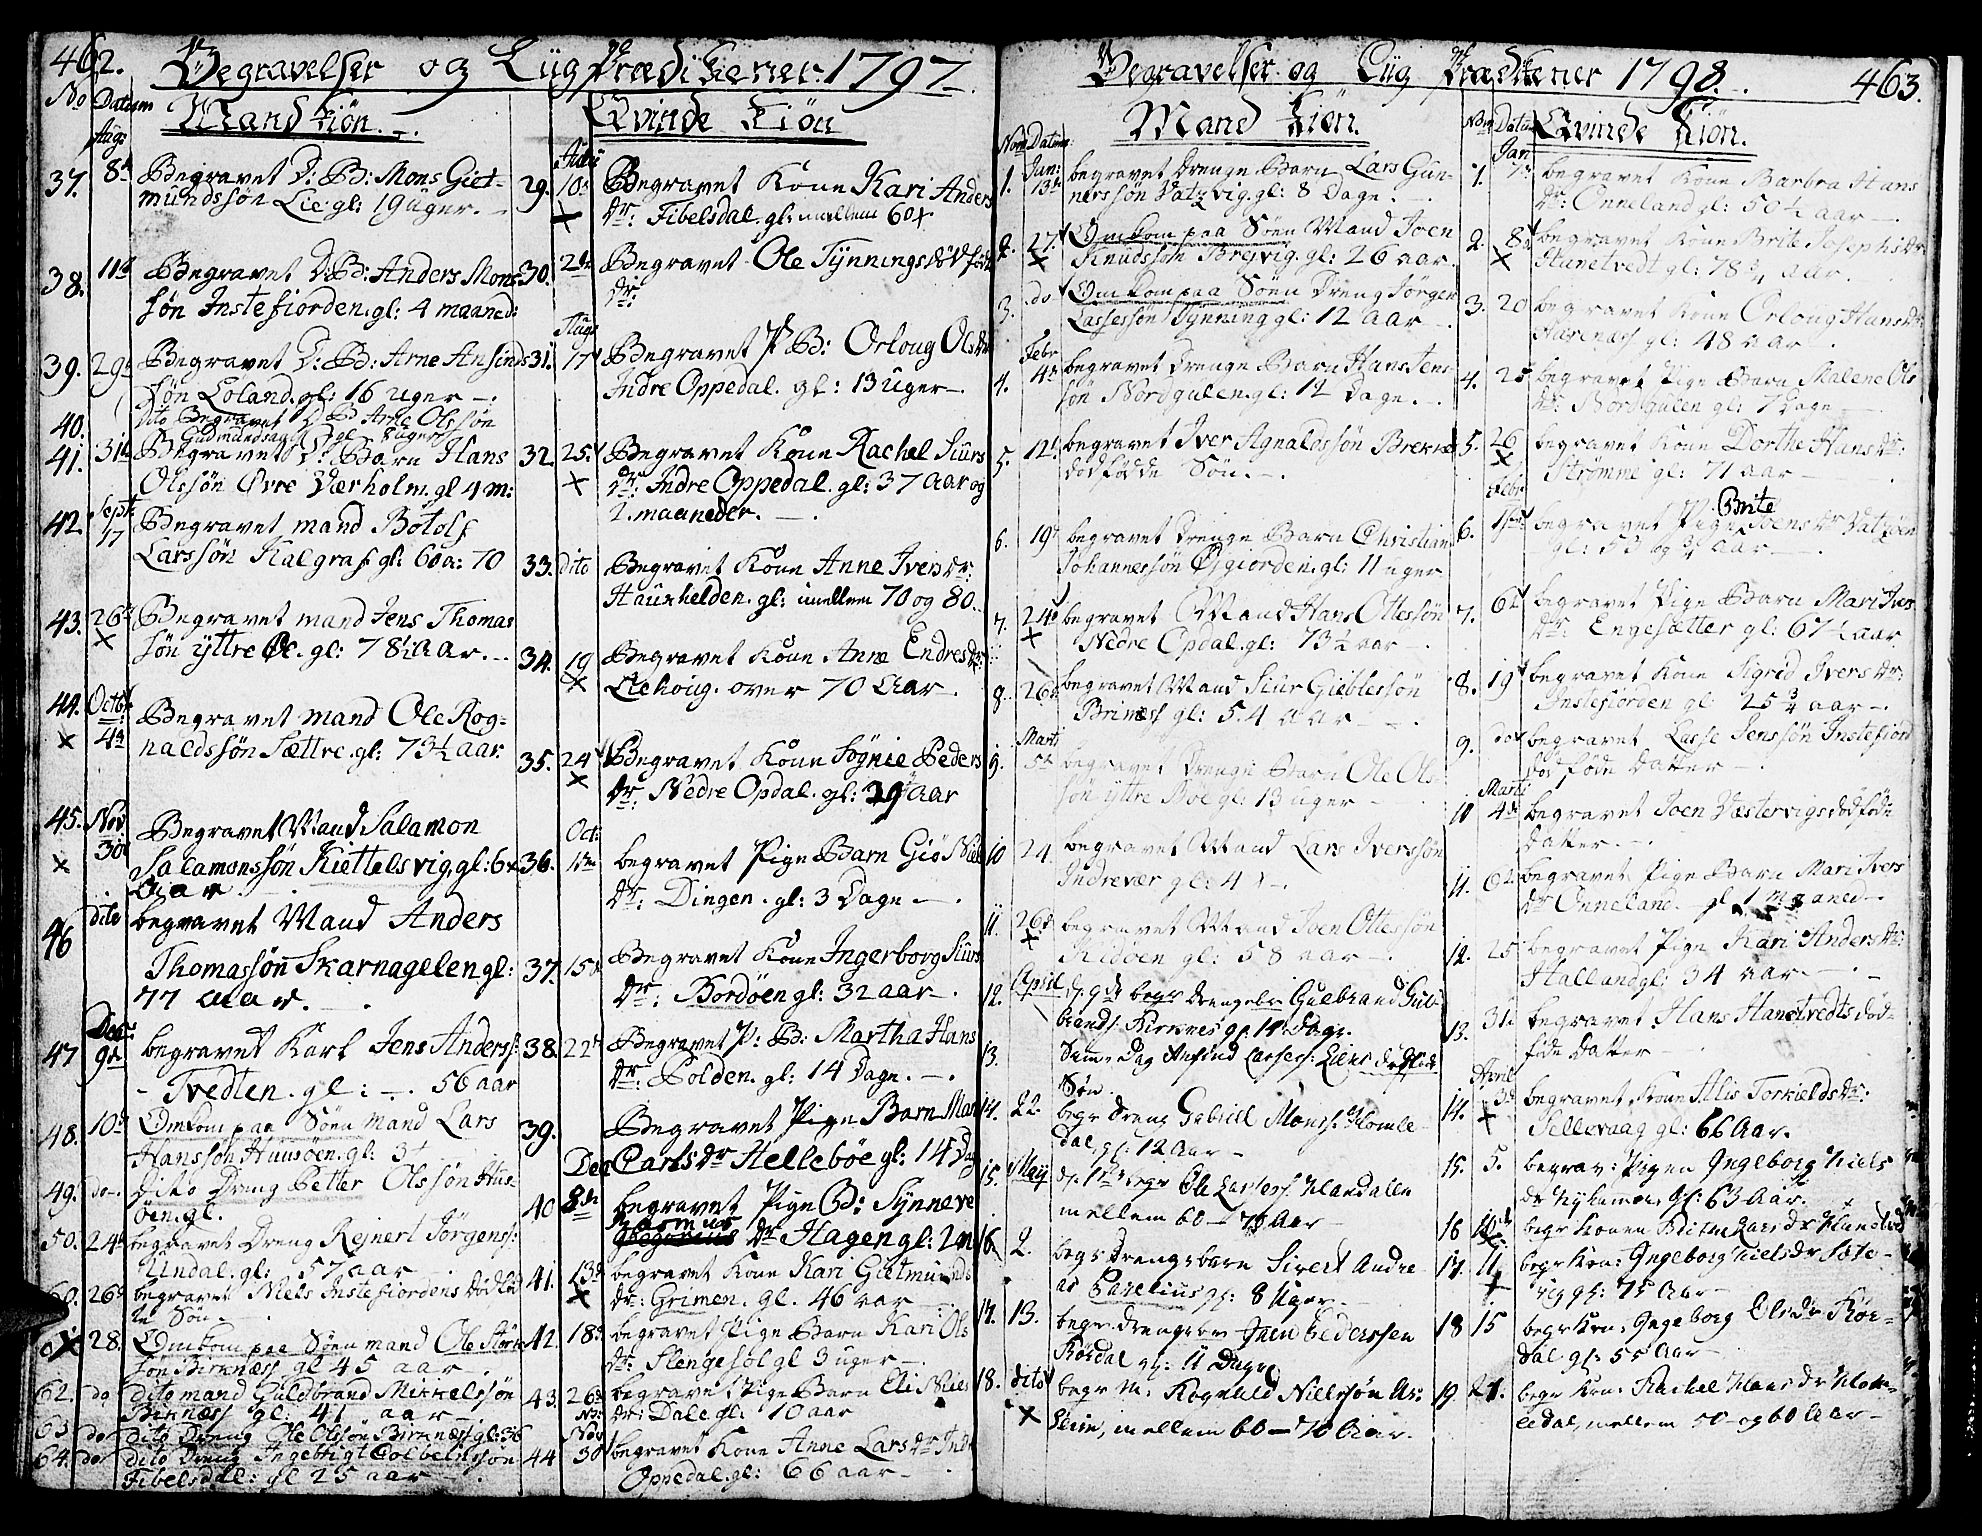 462. Begravelser og Liigprædikener 1797
No Datum
Mand Kiøn.
Augs
37. 8d Begravet D: B: Mons Giet-
mundssøn Lie gl: 19 uger. —
38. 11d Begravet D: B: Anders Mons
søn Instefiorden. gl: 4 maaned:
39. 29d Begravet D: B: Arne Ansinds
søn Loland. gl: 16 uger —.
40. dito Begravet D B Arne Olssøn
gl uger
41. 31d Begravet D: Barn Hans
Olssøn Øvre Værholm. gl 4 m:
42. Sept: 17 Begravet mand Botolf
Larssøn Kalgraf gl: 60 a: 70
43. 26d Begravet mand Jens Thomas
søn yttre Øe. gl: 78½ aar. —
44. Octob: 4d Begravet mand Ole Rog-
naldssøn Sættre. gl: 73½ aar
45. Nov. 30d Begravet Mand Salamon
Salamonssøn Kiettelsvig, gl: 64
Aar.
46 dito begravet Mand Anders
Thomassøn Skarnagelen gl:
77 aar.
47 Dec: 9d begravet Karl Jens Anderss:
- Tvedten. gl: —. 56 aar
48. 10d Omkom paa Søen mand Lars
Hanssøn Huusøen. gl: 3
49. do. Dito Dreng Petter Olssøn Hus-
øen. gl.
50. 24d begravet Dreng Rejnert Jörgenss:
Undal. gl: 57 aar
60. 26d begravet Niels Instefiordens dødfød
te Søn.
28. Omkom paa Søen mand Ole Størk
søn Birknæss gl 45 aar
62. do dito mand Guldbrand Mikkelssøn
Birknæss gl: 41 aar —
63 do dito Dreng Ole Olssøn Birknæss gl: 36
64. do dito Dreng Ingebrigt Colbeinssøn
Fibelsdal: gl 25 aar — .
Qvinde Kiøn
Julii
29. 10d Begravet Kone Kari Anders
dr: Fibelsdal. gl: imellem 60
30. 2d Begravet Ole Tynnings dødfødt
dr:
Augs
31. 17 Begravet P B: Orloug Ols dr
Indre Oppedal. gl: 13 uger —
32. 25. Begravet Kone Rachel Siurs
dr: Indre Oppedal. gl: 37 Aar og
2. maaneder. —.
33. dito Begravet Kone Anne Ivers dr:
Hauxhelden. gl: imellem 70 og 80.
34. 19 Begravet Kone Anne Endres dr:
Liehoug. over 70 Aar.
35. 24 Begravet Kone Sognie Peders
dr: Nedre Opdal. gl: 29 aar
Oct:
36. begravet Pige Barn Giø Niels
dr: Dingen. gl: 3 Dage —.
37. 15 Begravet Kone Ingerborg Siurs
dr: Bordøen gl: 32 aar — .
38. 22 Begravet P: B: Martha Hans
dr: Polden. gl: 14 Dage. —.
39. Begravet Pige Barn Mari
Carls dr Hellebøe gl: 14 Dag
Dec
40 8de begravet Pige B: Synneve
Rasmus dr Hagen gl: 2 m
41. 13d begravet Kone Kari Gietmunds
dr: Grimen. gl. 46 aar —
42. 18d begravet Pige Barn Kari Ols
dr: Slengesol gl 3 uger —.
43. 26d begravet Pige Barn Eli Niels
dr: Dale gl: 10 aar
Nov
44 30 begravet Kone Anne Lars dr Indr
Oppedal. gl: 66 aar —
Begravelser og Liig prædikener 1798. 463.
Nom Datum
Mand Kiøn.
Jan:
1. 13d begravet Drenge Barn Lars Gun-
nerssøn Vatzvig. gl: 8 Dage. —.
2. 27. Omkom paa Søen Mand Joen
Knudssøn Brejvig. gl: 26 aar.
3. do Omkom paa Søen Dreng Jørgen
Lassessøn Tynning gl: 12 Aar —.
Febr
4. 4d begravet Drenge Barn Hans Jens
søn Nordgulen. gl: 12 Dage. —.
5. 12. begravet Iver Agnaldssøn Brekke
dødfødde Søn. —.
6. 19 begravet Drenge Barn Christian
Johannessøn gl: 11 uger
7. 24d begravet Mand Hans Ottessøn
Nedre Opdal. gl: 73½ aar —
8. 26d begravet Mand Siur Gieblessøn
Brinæss gl: 54 aar —.
Marti
9. 5d begravet Drenge Barn Ole Ols-
søn yttre Bøe gl: 13 uger —
10 24. begravet Mand Lars Iverssøn
Indrevær gl: 4
11. 26d begravet Mand Joen Ottessøn
Kidøen gl: 58 aar —.
12. April d. 9de begr drengebr Gulbrand Gul-
brands: Birknes gl: 14 Dage.
13. Samme Dag Ansind Lasses: Liens dødfød
Søn
14. 22. begr Dreng Gabriel Monss. Homle-
dal gl: 12 Aar —
15. May d. 1ste begr Ole Larsen Handalen
mellem 60 — 70 Aar
16. 2. begr Drengebarn Sivert Andre-
as gl: 8 Uger. —
17. 13. begr Drengebr Joen Pederssen
Rørdal gl: 11 Dage
18. dito begr M: Rognald Nilssøn As:
, mellem 60 — 70 Aar.
Nom Datum
Qvinde Kiøn.
Jan
1. 7d begravet Kone Barbra Hans
dr: Onneland gl: 50½ aar —.
2. 8 begravet Kone Brite Josephs dr:
Hanetvedt gl: 78¾ aar.
3. 20 begravet Kone Orloug Hans dr:
Havenæss gl: 48 aar
4. 25 begravet Pige Barn Malene Ols
dr: Nordgulen gl: 7 Dage —
5. 26 begravet Kone Dorthe Hans dr:
Strømme gl: 71 aar —.
Febr
6. begravet Pige Brite Joens dr Vatzøen
gl: 53 og ¾ Aar —.
7. 6d begravet Pige Barn Mari Ivers
dr: Engesætter gl: 67½ aar
8. 19 begravet Kone Sigrid Ivers dr:
Instefiorden gl: 25¾ aar —.
9. do begravet Lasse Jenssøn Instefiord
død føde datter —.
Marti
10 4d begravet Joen Væstervigs dødføde
datter. —.
11. 6d begravet Pige Barn Mari Ivers
dr Onneland. gl 1 Maaned —
12. 25 begravet Pige Kari Anders dr:
Halland gl: 34 aar — .
13. 31. begravet Hans Hanetvedts død-
føde datter —
April
14. 3d begravet Kone Alis Torkields dr:
Sellevaag gl: 66 Aar.
15. 5. begrav: Pigen Ingeborg Niels
dr Nykamen, gl: 63 Aar.
16 10d begr Konen Brithe Lars dr Handal
17. 11. begr Kon: Ingeborg Niels dr Sæte-
vig gl: 75 Aar —
18 15 begr Kon: Ingeborg Ols dr Rør-
dal. gl: 55 Aar —
19. 21. begr Kon: Rachel Hans dr Hom-
ledal, mellem 50 og 60 Aar —